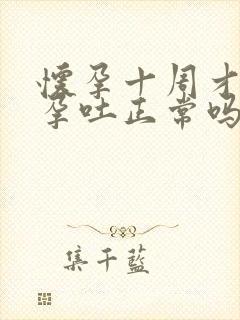 懷孕十周才
孕吐正常吗
集千藍